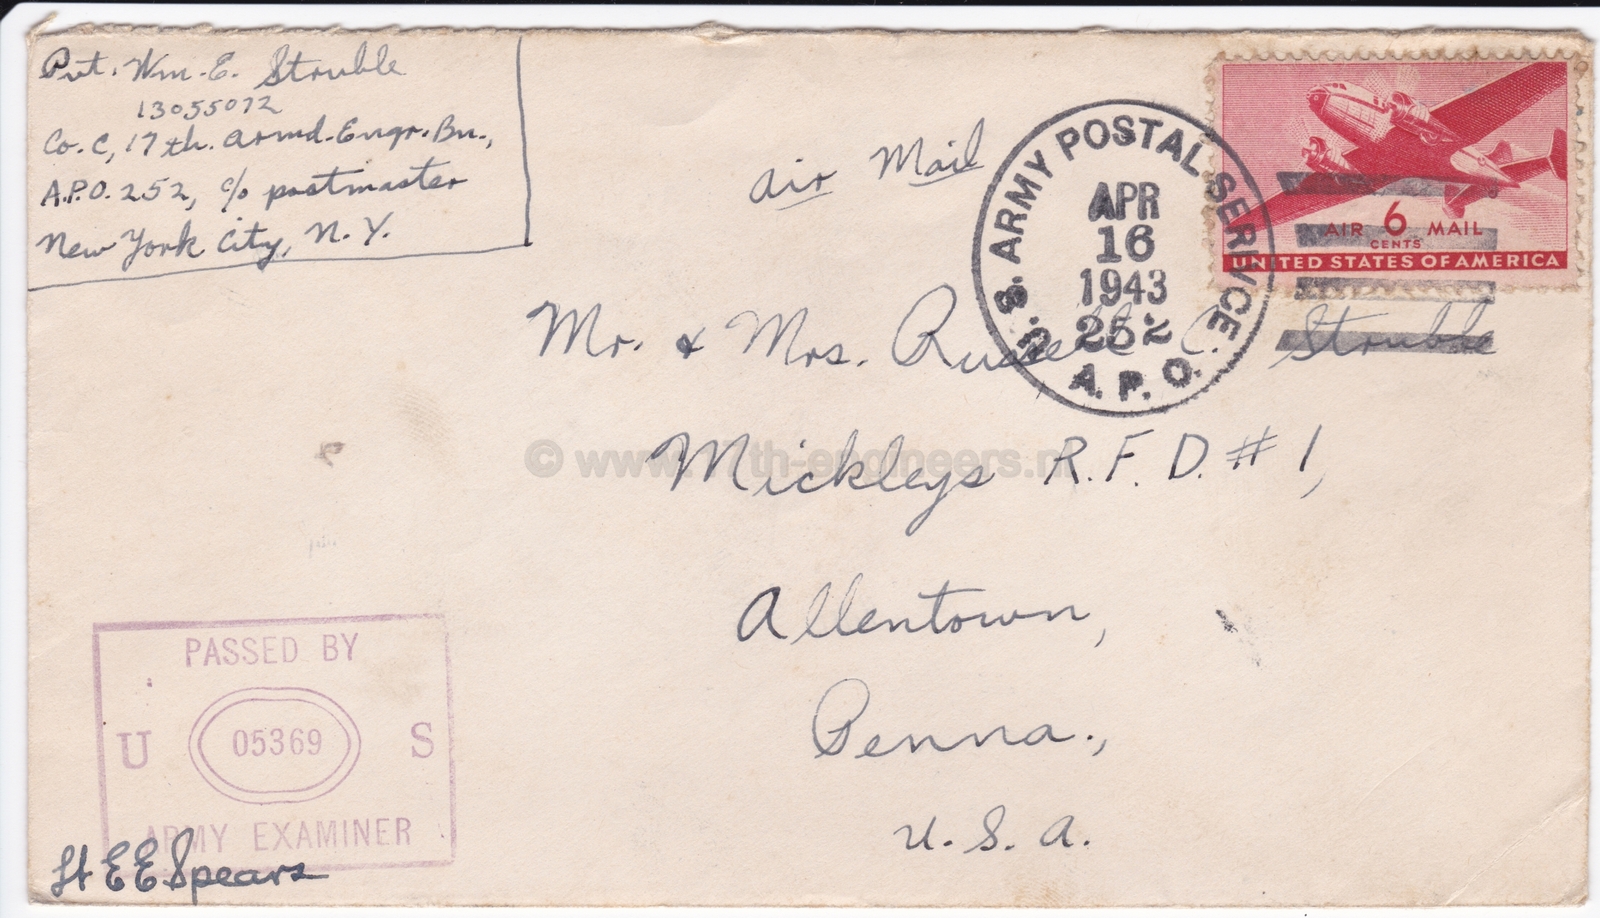 Pvt. Wm. E. Struble
13055072
Co. C, 17th. Armd. Engr. Bn.,
A.P.O. 252, c/o postmaster
New York City, N. Y.
Air Mail
U. S. ARMY POSTAL SERVICE
APR
16
1943
252
A. P. O.
AIR 6 MAIL
CENTS
UNITED STATES OF AMERICA
Mr. & Mrs. Russell C. Struble
Mickleys R.F.D. #1,
Allentown,
Penna.,
U. S. A.
© www.17th-engineers.n
PASSED BY
U 05369 S
ARMY EXAMINER
Lt E E Spears